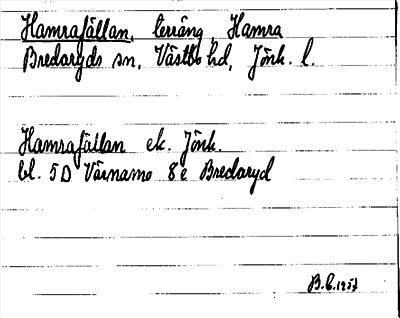 Hamrafällan, terräng, Hamra
Bredaryds sn, Västbo hd, Jönk. l.
Hamrafällan ek. Jönk.
bl. 5D Värnamo 8e Bredaryd